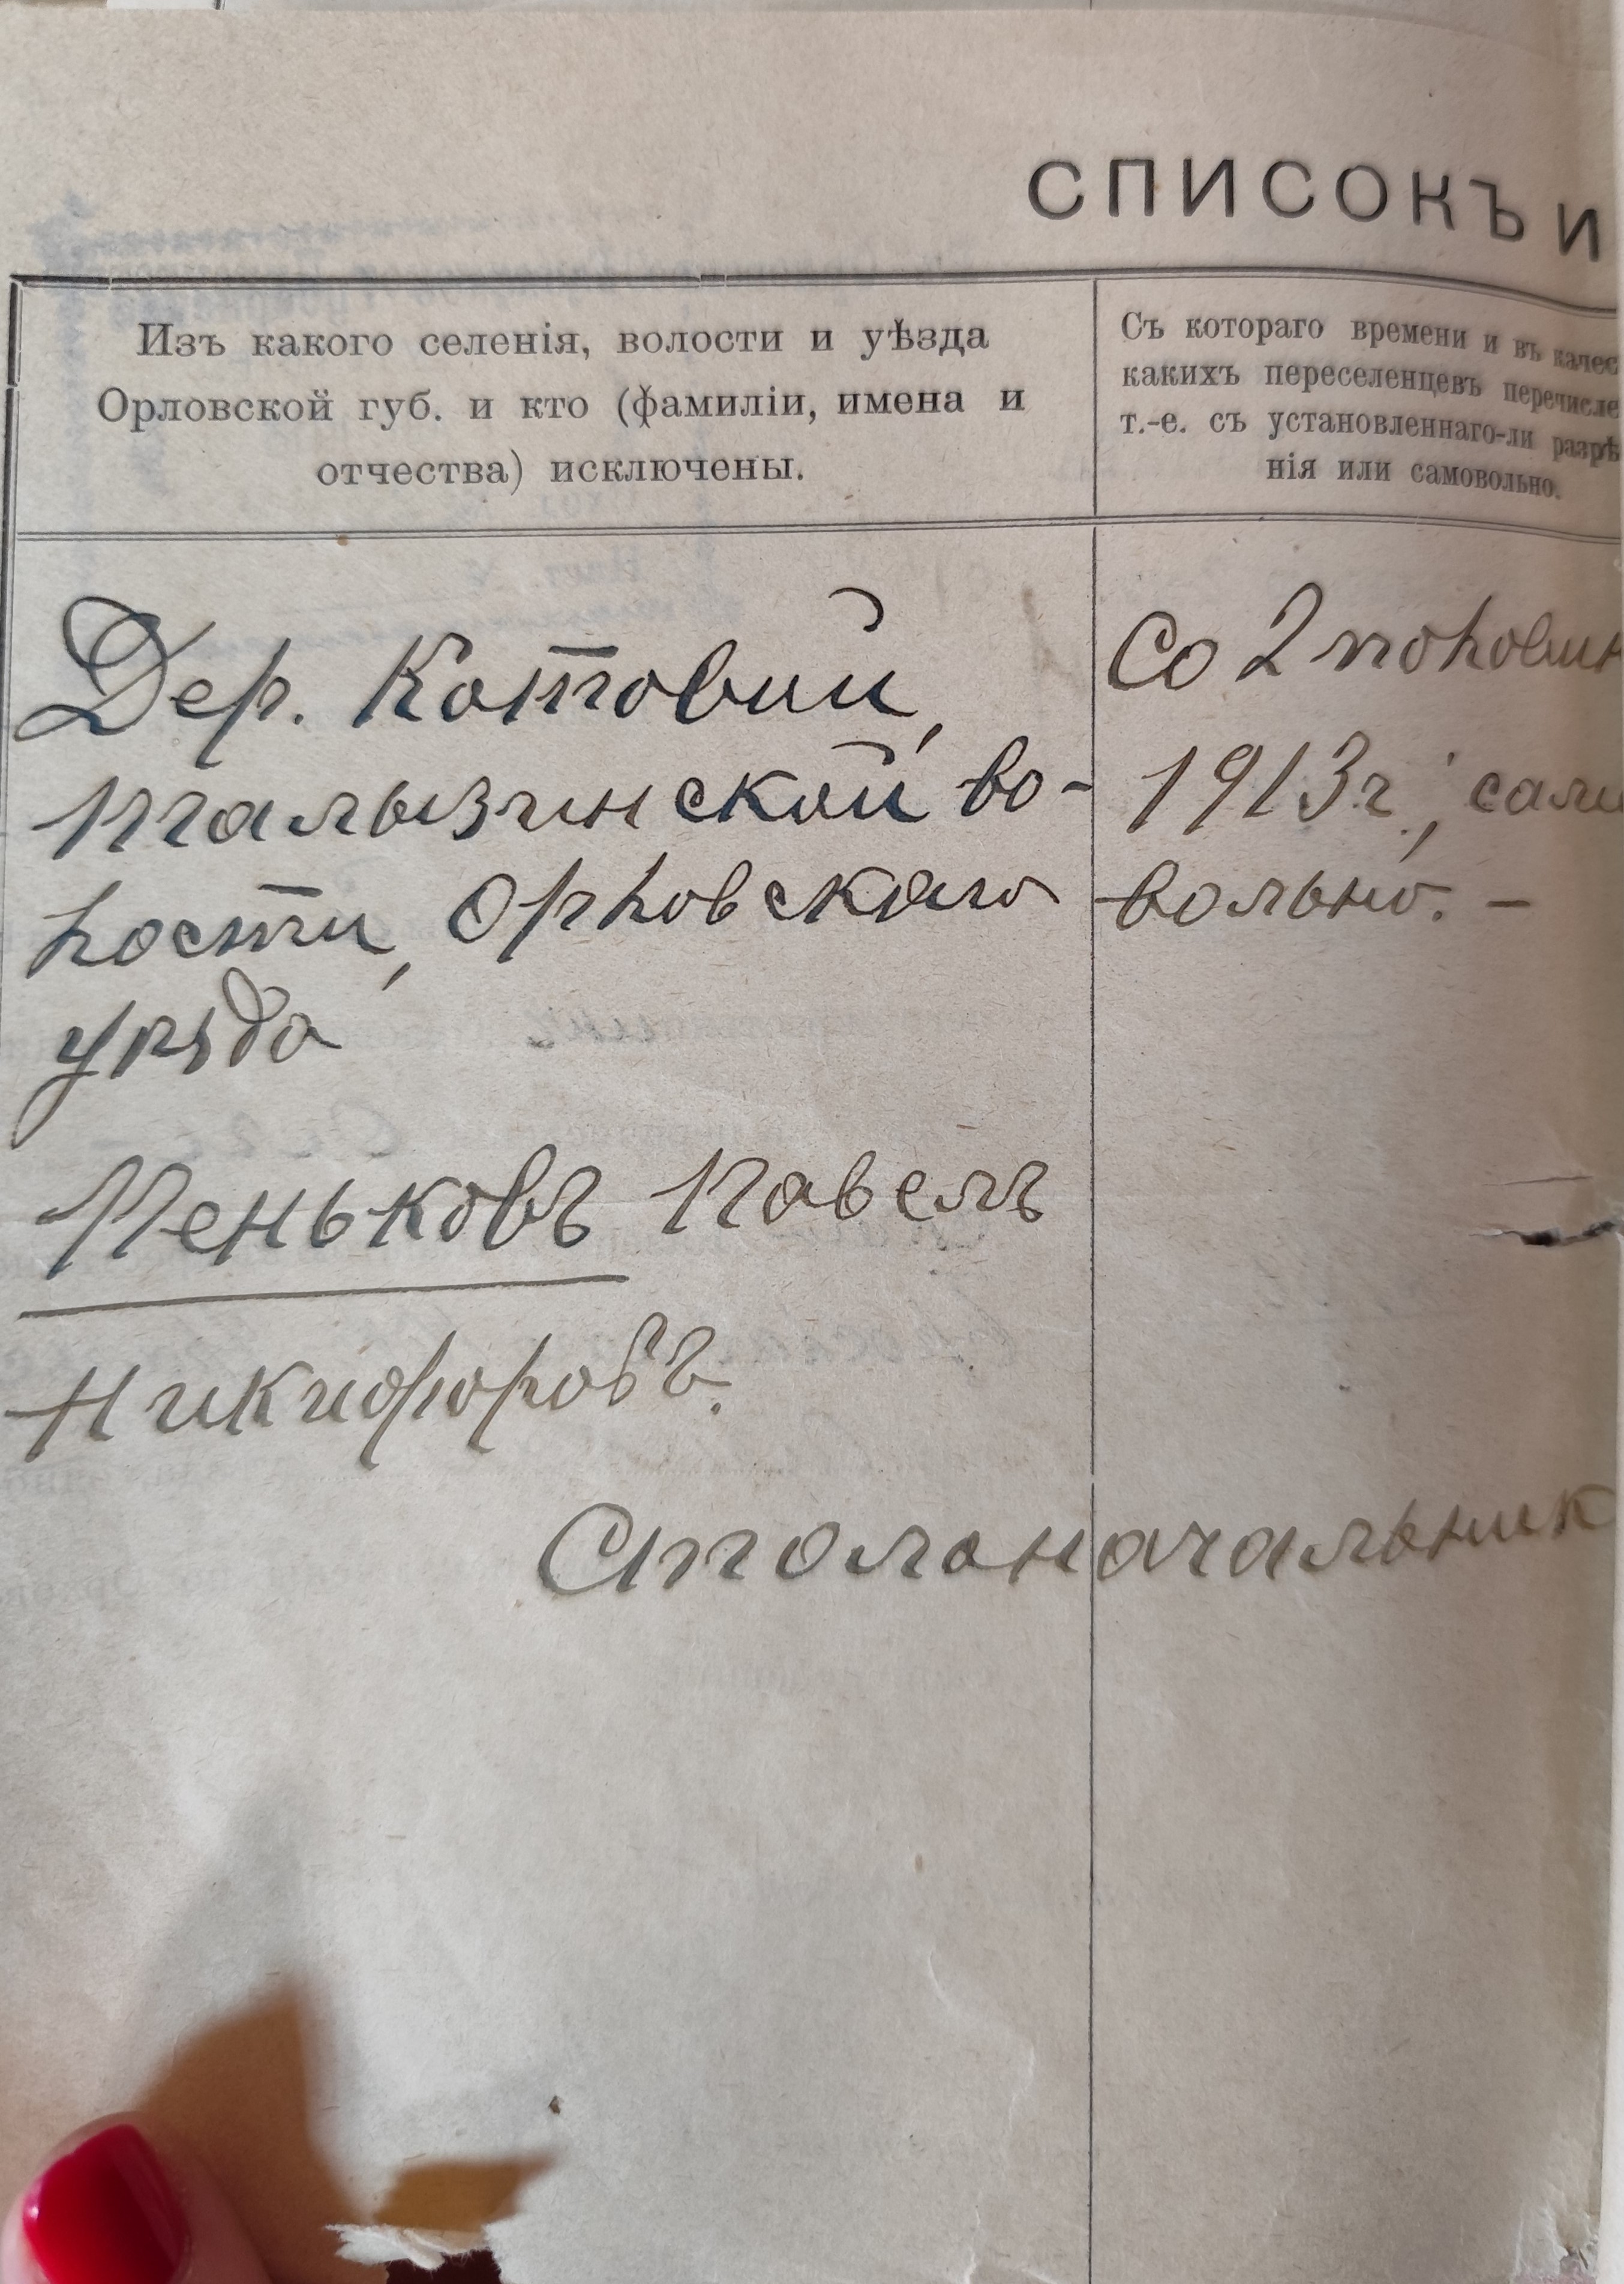 СПИСОКЪ И
Изъ какого селенія, волости и уѣзда
Орловской губ. и кто (фамиліи, имена и
отчества) исключены.
Съ котораго времени и въ качес
какихъ переселенцевъ перечисле
т.-е. съ установленнаго-ли разрѣ
нія или самовольно.
Дер. Котовий,
Талызинской во-
лости, Орловскаго
уѣзда
Пеньковъ Павелъ
Никифоровъ.
Со 2 половин
1913 г., само
вольно. –
Столоначальник